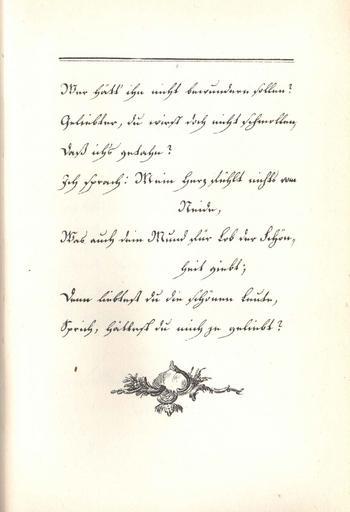 Wer hätt' ihn nicht bewundern sollen?
Geliebter, du wirst doch nicht schmollen,
Daß ichs gethan?
Ich sprach: Mein Herz fühlt nichts vom
Neide,
Was auch dein Mund für Lob der Schön-
heit giebt;
Denn liebtest du die schönen Leute,
Sprich, hättest du mich je geliebt?